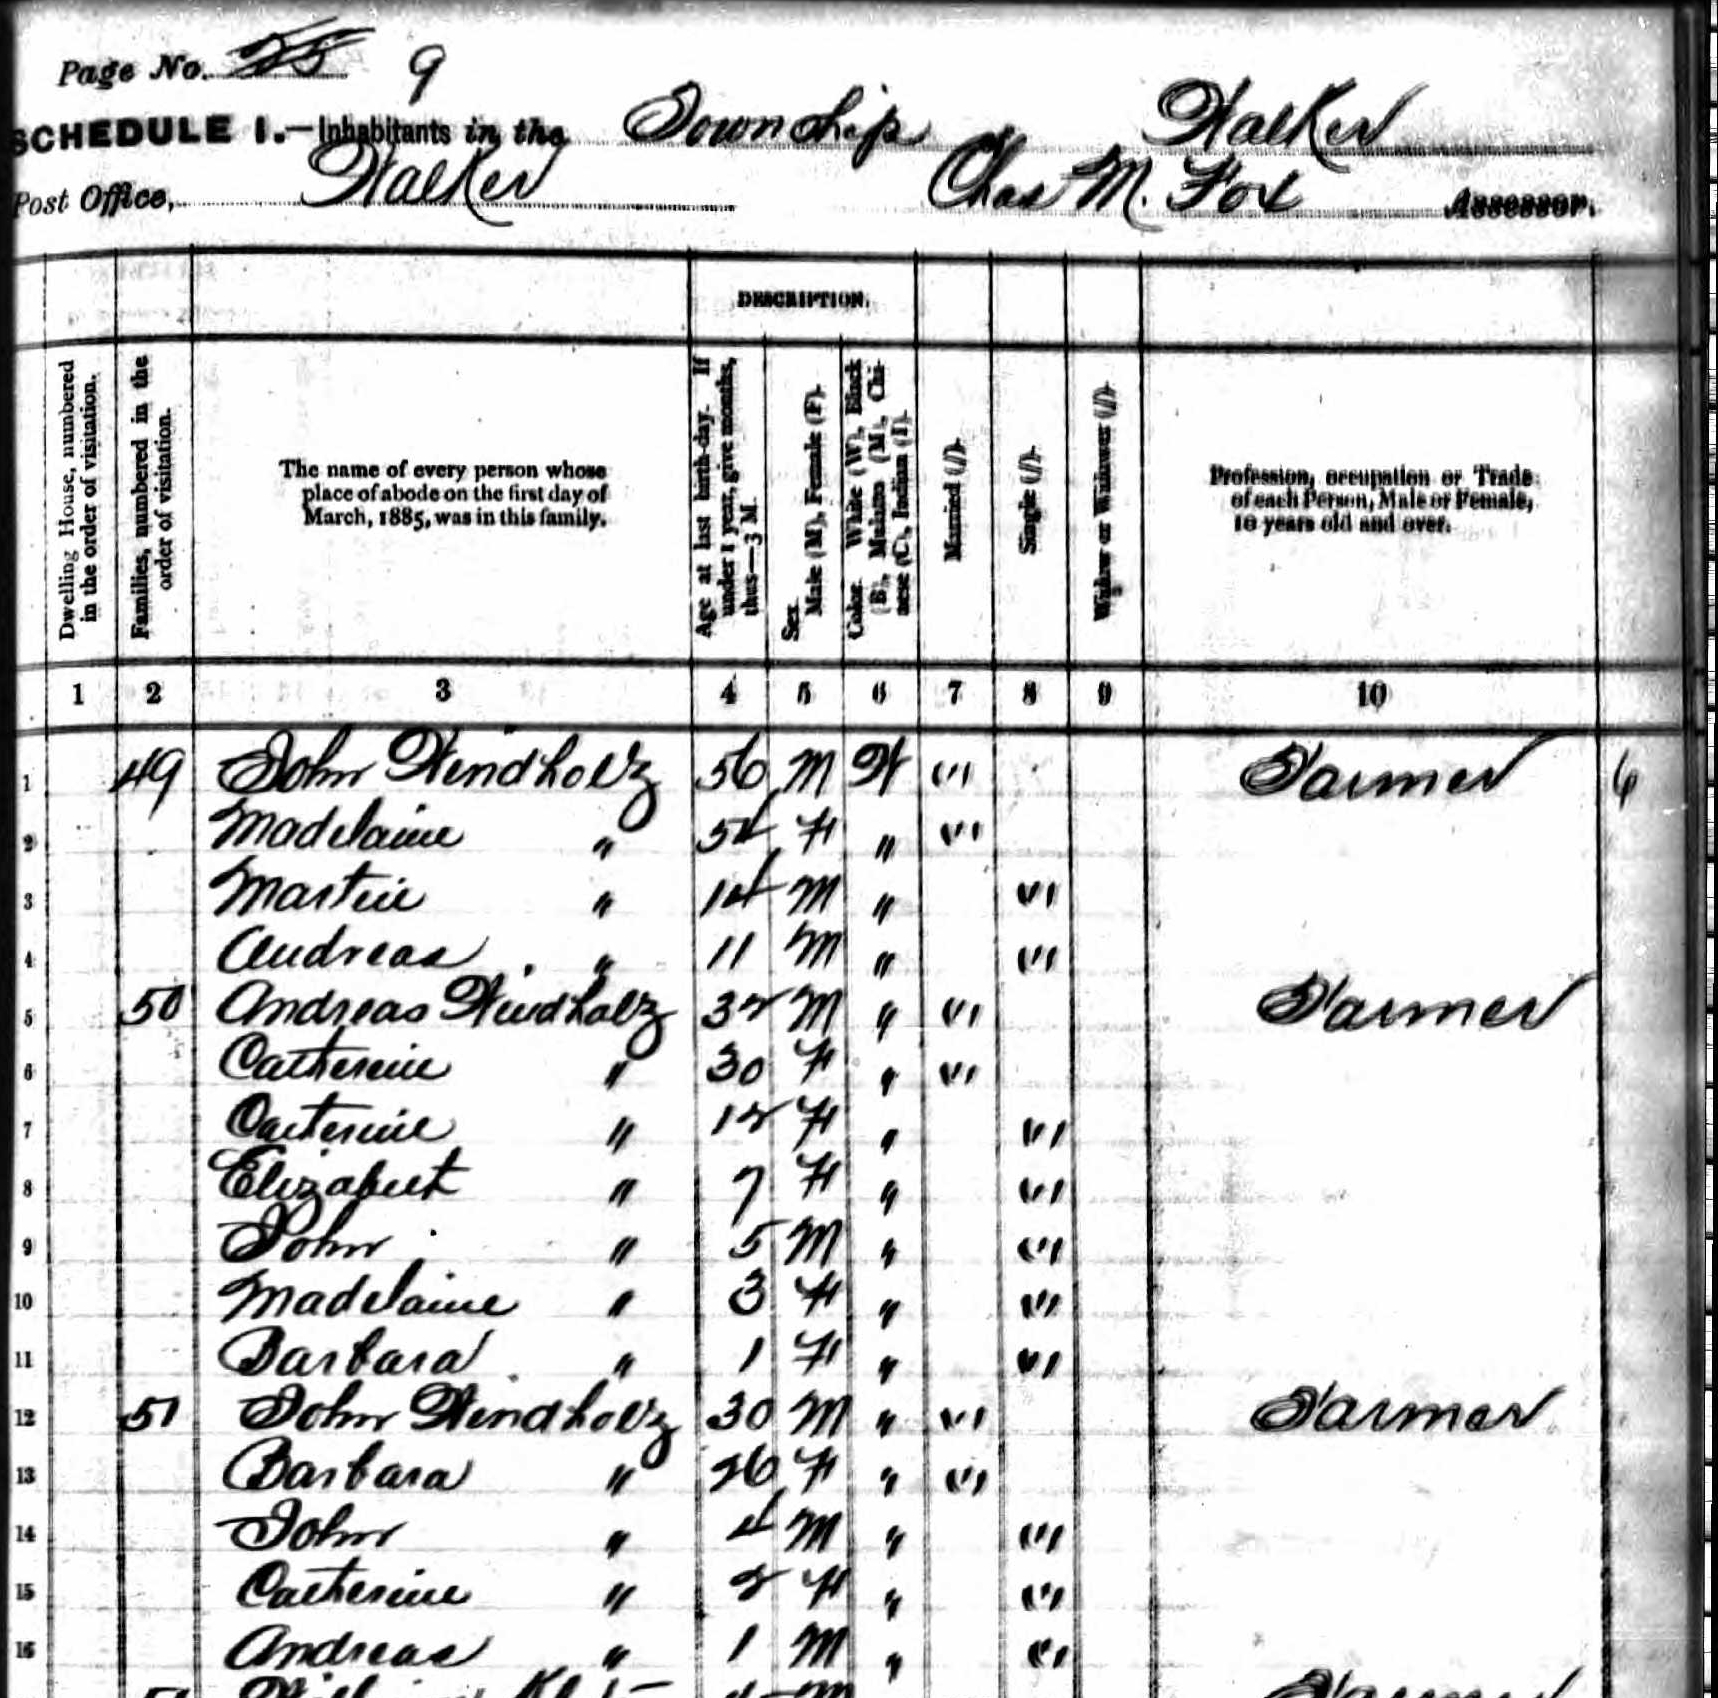 Page No. 25 9
SCHEDULE I.—Inhabitants in the Township of Walker
Post Office, Walker Chas M. Fox Assessor.
DESCRIPTION.
Dwelling House, numbered in the order of visitation.
Families, numbered in the order of visitation.
The name of every person whose place of abode on the first day of March, 1885, was in this family.
Age at last birth-day. If under 1 year, give months, thus—3 M.
Sex. Male (M), Female (F).
Color. White (W), Black (B), Mulatto (M), Chinese (C), Indian (I).
Married (/).
Single (/).
Widow or Widower (/).
Profession, occupation or Trade of each Person, Male or Female, 10 years old and over.
1 2 3 4 5 6 7 8 9 10
1 49 John Windholz 56 M W "' Farmer 6
2 Madelaine " 54 F " "'
3 Martin " 14 M " "'
4 Andreas " 11 M " "'
5 50 Andreas Windholz 32 M " "' Farmer
6 Catherine " 30 F " "'
7 Catherine " 12 F " "'
8 Elizabeet " 7 F " "'
9 John " 5 M " "'
10 Madelaine " 3 F " "'
11 Barbara " 1 F " "'
12 51 John Windholz 30 M " "' Farmer
13 Barbara " 26 F " "'
14 John " 4 M " "'
15 Catherine " 2 F " "'
16 Andreas " 1 M " "'
Farmer